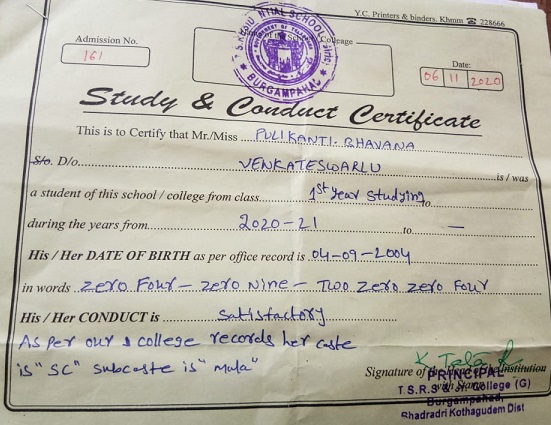 Y.C. Printers & binders. Khmm ☎ 228666
Admission No.
161
BURGAMPAHAD
Date:
06 11 2020
Study & Conduct Certificate
This is to Certify that Mr./Miss PULIKANTI. BHAVANA
S/o. D/o. VENKATESWARLU is / was
a student of this school / college from class 1st year studying to
during the years from 2020-21 to —
His / Her DATE OF BIRTH as per office record is 04-09-2004
in words zero Four - zero Nine - Two zero zero Four
His / Her CONDUCT is satisfactory
As per our college records her caste
is "SC" subcaste is "Mala"
Signature of the Head of the Institution
with Stamp
PRINCIPAL
T.S.R.S & Jr. College (G)
Burgampahad,
Bhadradri Kothagudem Dist